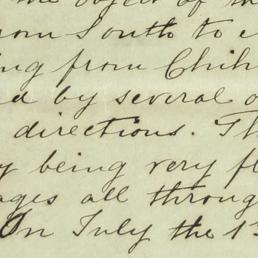 the object of th
rom South to e
ing from Chih
d by several o
directions. Th
y being very fl
ages all throug
On July the 1